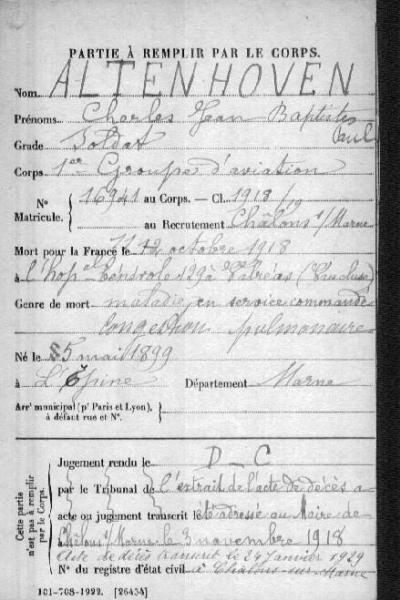 PARTIE À REMPLIR PAR LE CORPS.
Nom ALTENHOVEN
Prénoms Charles Jean Baptiste
Paul
Grade Soldat
Corps 1er Groupe d'aviation
N° Matricule. { 16941 au Corps. — Cl. 1918/19
au Recrutement Châlons s/Marne
Mort pour la France le 12 octobre 1918
à l'hop 129 à Valréas (Vaucluse)
Genre de mort maladie en service commandé
congestion pulmonaire
Né le 5 mai 1899
à L'Épine Département Marne
Arrt municipal (pr Paris et Lyon), à défaut rue et N°. {
Cette partie n'est pas à remplir par le Corps.
Jugement rendu le D - C
par le Tribunal de l'extrait de l'acte de décès a
acte ou jugement transcrit le été adressé au Maire de
Châlons s/Marne le 3 novembre 1918
Acte de décès transcrit le 24 Janvier 1929
N° du registre d'état civil à Châlons-sur-Marne
101-708-1922. [26434]